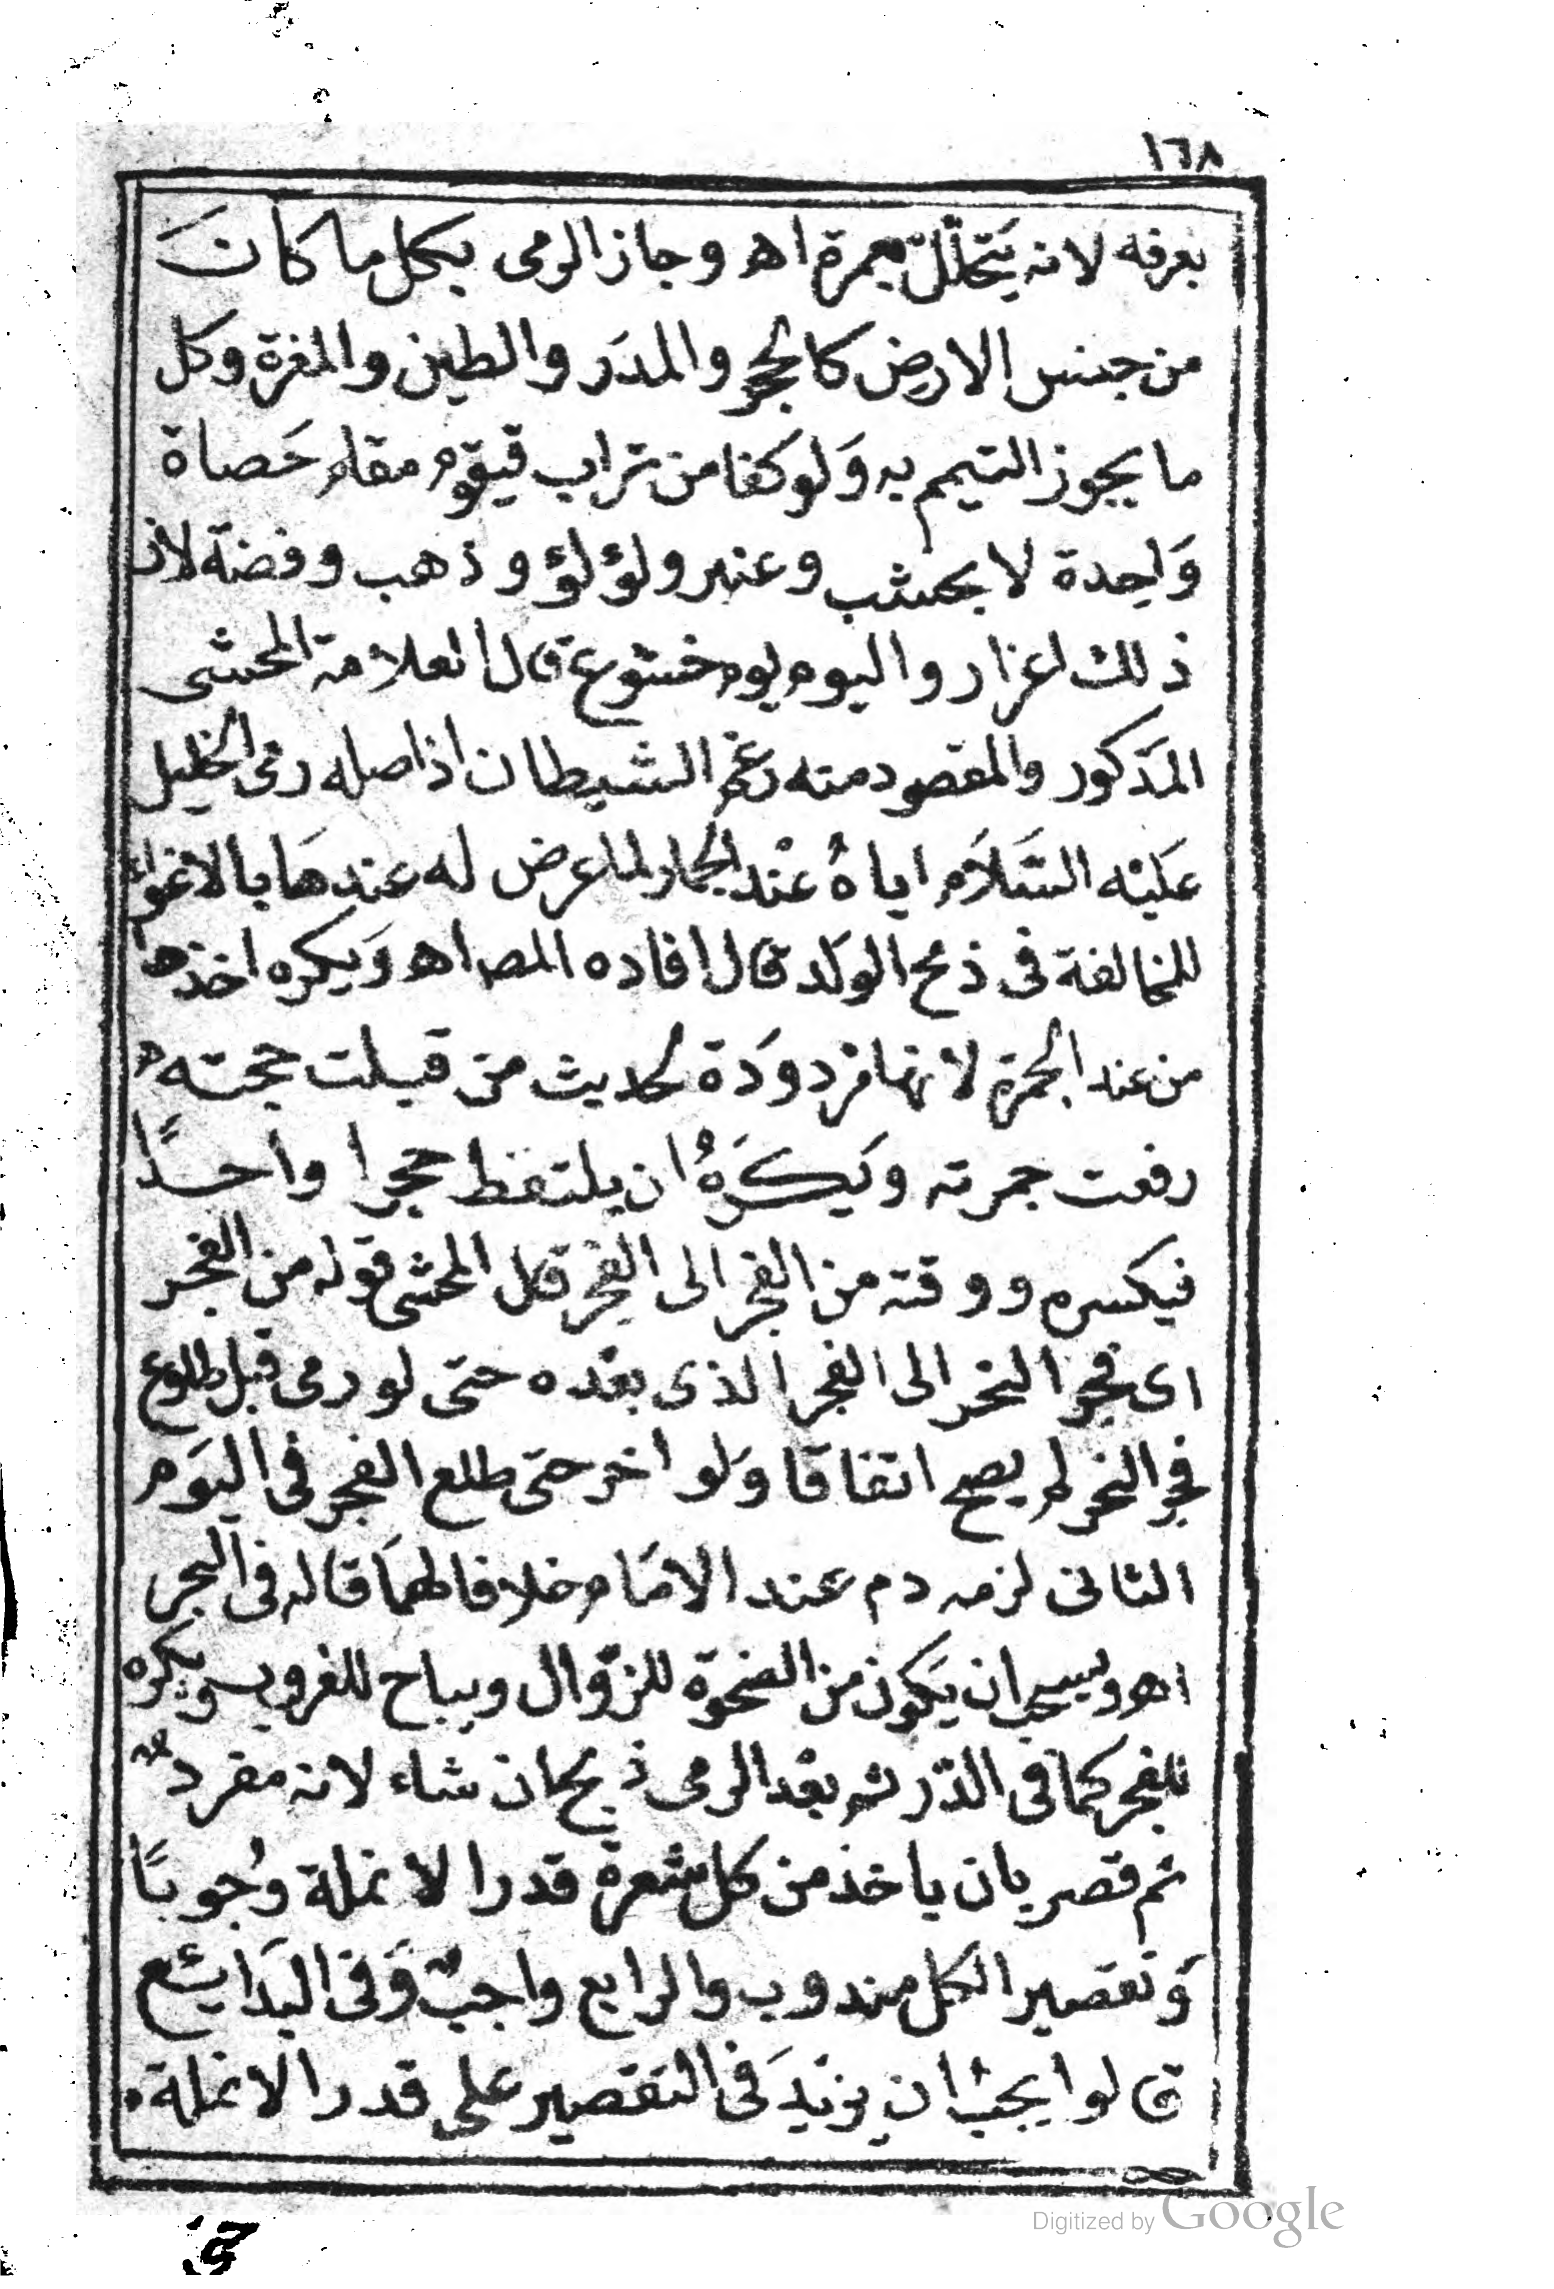 ١٦٨
بعرفه لانه يَتحلّل بعمرة اه وجاز الرمى بكل ما كانَ
من جنس الارض كالحجر والمدَر والطين والمغرة وكل
ما يجوز التيمم به وَلو كفا من تراب فيقوم مقام حَصاة
وَاحدة لا بخشب وعنبر ولؤلؤ وذهب وفضة لان
ذلك اعزاز واليوم يوم خشوع قال العلامة المحشى
المذكور والمقصود منه رغم الشيطان اذ اصله رمى الخليل
عَليْه السَّلاَم اياهُ عنْد الجمار لما عرض له عندهَا بالاغواء
للمخالفة فى ذبح الولد قال افاده المص اه وَيكره اخذها
من عند الجمرة لانها مردودَة لحديث من قبلت حجته
رفعت جمرته ويَكرَهُ ان يلتقط حجرا واحدًا
فيكسره ووقته من الفجر الى الفجر قال المحشى قوله من الفجر
اى فجر النحر الى الفجر الذى بعْده حتى لو رمى قبل طلوع
فجر النحر لم يصح اتفاقا وَلو اخر حتى طلع الفجر فى اليوَم
الثانى لزمه دم عند الامَام خلافا لهمَا قاله فى البحر
اه ويستحب ان يَكون من الضحوة للزّوال ويباح للغروب ويكره
للفجر كما فى الدّر ثم بعْد الرمى ذبح ان شاء لانه مفرد
ثم قصر بان ياخذ من كل شعرة قدر الانملة وُجوبًا
وَتقصير الكل مندوب والرابع واجبٌ وَفى البدَايئع
قالوا يجبُ ان يزيدَ فى التقصير على قدر الانملة
Digitized by Google